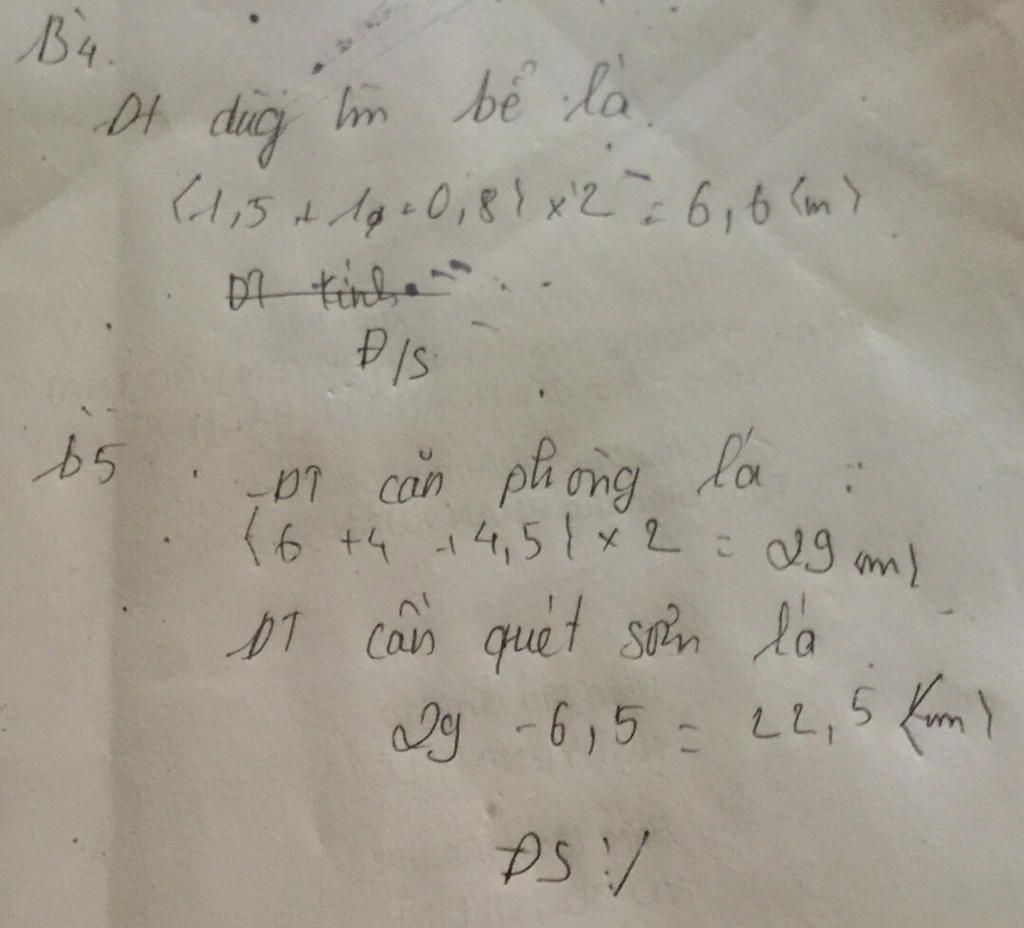 B4.
DT dùg làm bể là.
(1,5 + 1 + 0,8) x 2 = 6,6 (m)
DT kính
Đ/S
b5
DT căn phòng là :
(6 + 4 + 4,5) x 2 = 29 (m)
DT cần quét sơn là
29 - 6,5 = 22,5 (m)
ĐS :/